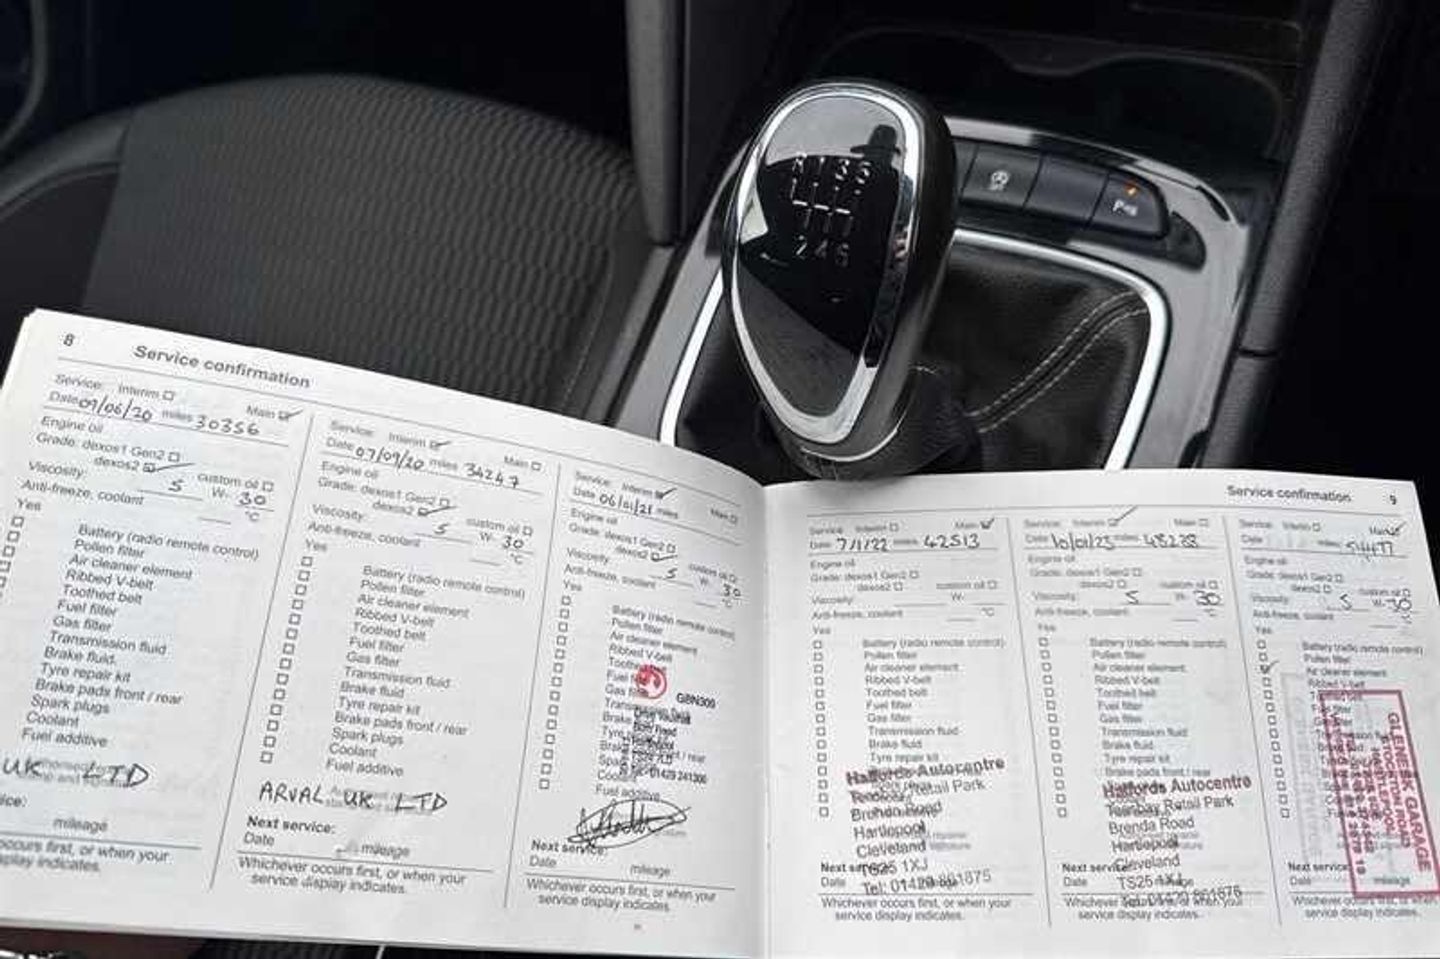 R 1 3 5
2 4 6
8
Service confirmation
Service: Interim Main
Date 09/06/20 miles 30356
Engine oil
Grade: dexos1 Gen2
dexos2 custom oil
Viscosity: 5 W- 30
Anti-freeze, coolant °C
Yes
Battery (radio remote control)
Pollen filter
Air cleaner element
Ribbed V-belt
Toothed belt
Fuel filter
Gas filter
Transmission fluid
Brake fluid
Tyre repair kit
Brake pads front / rear
Spark plugs
Coolant
Fuel additive
UK LTD
mileage
occurs first, or when your
display indicates.
Service: Interim Main
Date 07/09/20 miles 34247
Engine oil
Grade: dexos1 Gen2
dexos2 custom oil
Viscosity: 5 W- 30
Anti-freeze, coolant °C
Yes
Battery (radio remote control)
Pollen filter
Air cleaner element
Ribbed V-belt
Toothed belt
Fuel filter
Gas filter
Transmission fluid
Brake fluid
Tyre repair kit
Brake pads front / rear
Spark plugs
Coolant
Fuel additive
ARVAL UK LTD
Next service:
Date mileage
Whichever occurs first, or when your
service display indicates.
Service: Interim Main
Date 06/01/21 miles
Engine oil
Grade: dexos1 Gen2
dexos2 custom oil
Viscosity: 5 W- 30
Anti-freeze, coolant °C
Yes
Battery (radio remote control)
Pollen filter
Air cleaner element
Ribbed V-belt
Fuel
GBN300
Gas
01429 241300
Fuel additive
Next service:
Date mileage
Whichever occurs first, or when your
service display indicates.
Service confirmation
9
Service: Interim Main
Date 7/1/22 miles 42513
Engine oil
Grade: dexos1 Gen2
dexos2 custom oil
Viscosity: W-
Anti-freeze, coolant °C
Yes
Battery (radio remote control)
Pollen filter
Air cleaner element
Ribbed V-belt
Toothed belt
Fuel filter
Gas filter
Transmission fluid
Brake fluid
Tyre repair kit
Halfords Autocentre
Teesbay Retail Park
Brenda Road
Hartlepool
Cleveland
TS25 1XJ
Tel: 01429 861875
Next service
Date
Whichever occurs first, or when your
service display indicates.
Service: Interim Main
Date 10/01/23 miles 48288
Engine oil
Grade: dexos1 Gen2
dexos2 custom oil
Viscosity: 5 W- 30
Anti-freeze, coolant °C
Yes
Battery (radio remote control)
Pollen filter
Air cleaner element
Ribbed V-belt
Toothed belt
Fuel filter
Gas filter
Transmission fluid
Brake fluid
Tyre repair kit
Brake pads front / rear
Halfords Autocentre
Teesbay Retail Park
Brenda Road
Hartlepool
Cleveland
TS25 1XJ
Tel: 01429 861875
Next service
Date
Whichever occurs first, or when your
service display indicates.
Service: Interim Main
Date miles
Engine oil
Grade: dexos1 Gen2
dexos2 custom oil
Viscosity: 5 W- 30
Anti-freeze, coolant °C
Yes
Battery (radio remote control)
Pollen filter
Air cleaner element
Ribbed V-belt
GLENESK GARAGE
STOCKTON ROAD
HARTLEPOOL
Next service
Date mileage
Whichever occurs first, or when your
service display indicates.